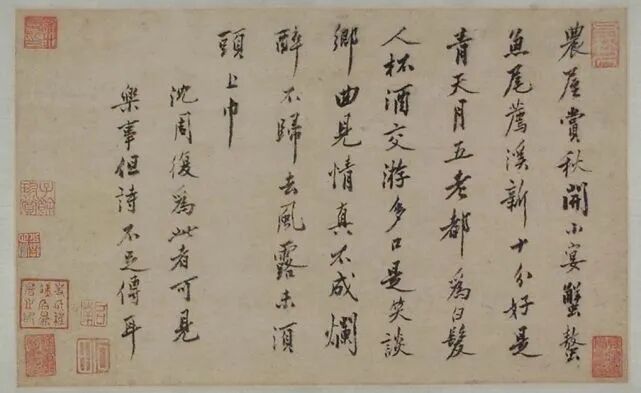 農屋賞秋開小宴蟹螯
魚尾薦溪新十分好是
青天月五老都為白髮
人杯酒交游多口是笑談
鄉曲見情真不成爛
醉不歸去風露未須
頭上巾
沈周復為此者可見
樂事但詩不足傳耳